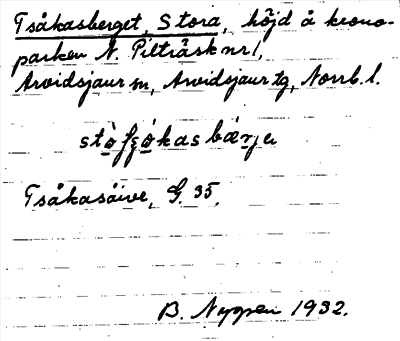 Tsåkasberget, Stora, höjd å krono-
parken N. Pilträsk nr 1,
Arvidsjaur sn, Arvidsjaur tg, Norrb. l.
Tsåkasåive, G. 35.
B. Nyman 1932.